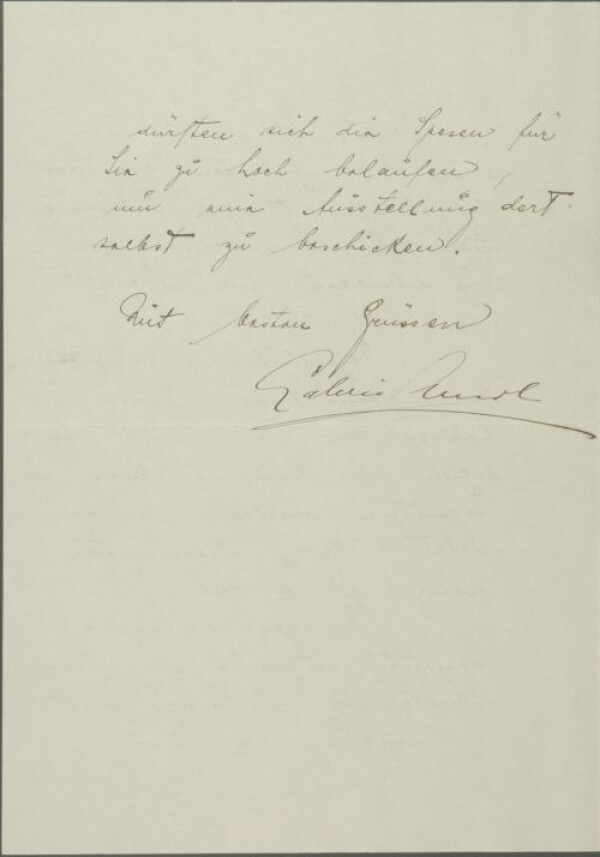 dürften sich die Spesen für
Sie zu hoch belaufen,
um eine Ausstellung dort-
selbst zu beschicken.
Mit besten Grüssen